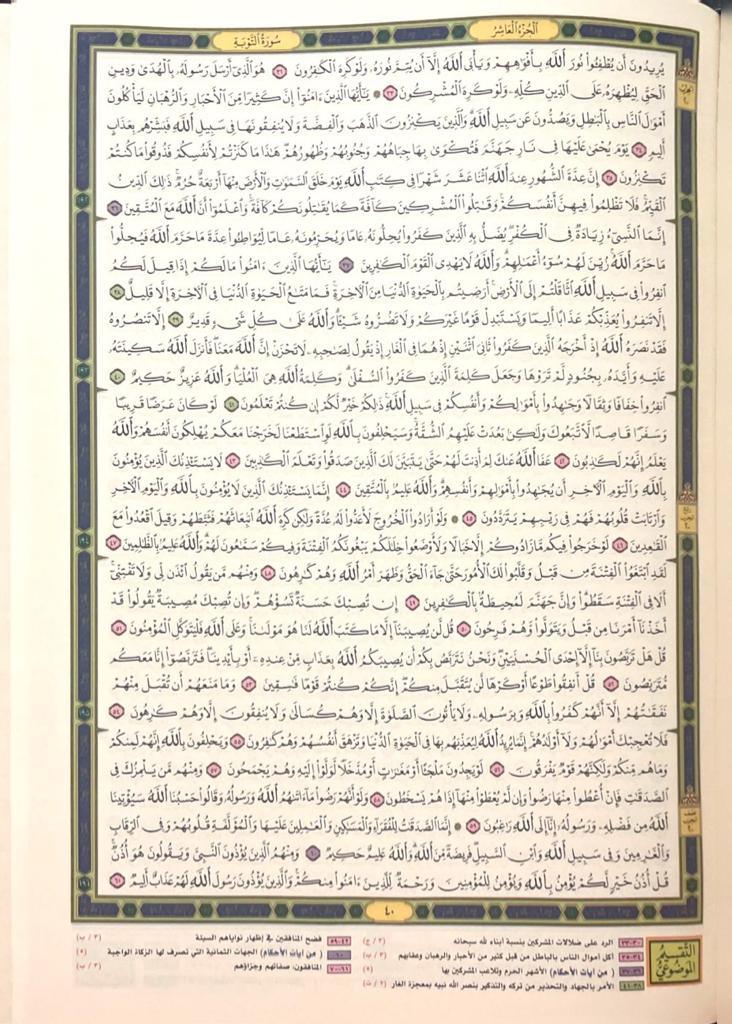 الجزء العاشر
سورة التوبة
يريدون أن يطفئوا نور الله بأفواههم ويأبى الله إلا أن يتم نوره ولو كره الكفرون ٣٢ هو الذي أرسل رسوله بالهدى ودين
الحق ليظهره على الدين كله ولو كره المشركون ٣٣ يأيها الذين ءامنوا إن كثيرا من الأحبار والرهبان ليأكلون
أمول الناس بالبطل ويصدون عن سبيل الله والذين يكنزون الذهب والفضة ولا ينفقونها في سبيل الله فبشرهم بعذاب
أليم ٣٤ يوم يحمى عليها في نار جهنم فتكوى بها جباههم وجنوبهم وظهورهم هذا ما كنزتم لأنفسكم فذوقوا ما كنتم
تكنزون ٣٥ إن عدة الشهور عند الله اثنا عشر شهرا في كتب الله يوم خلق السموت والأرض منها أربعة حرم ذلك الدين
القيم فلا تظلموا فيهن أنفسكم وقتلوا المشركين كافة كما يقتلونكم كافة واعلموا أن الله مع المتقين ٣٦
إنما النسيء زيادة في الكفر يضل به الذين كفروا يحلونه عاما ويحرمونه عاما ليواطئوا عدة ما حرم الله فيحلوا
ما حرم الله زين لهم سوء أعملهم والله لا يهدي القوم الكفرين ٣٧ يأيها الذين ءامنوا ما لكم إذا قيل لكم
انفروا في سبيل الله اثاقلتم إلى الأرض أرضيتم بالحيوة الدنيا من الآخرة فما متع الحيوة الدنيا في الآخرة إلا قليل ٣٨
إلا تنفروا يعذبكم عذابا أليما ويستبدل قوما غيركم ولا تضروه شيئا والله على كل شيء قدير ٣٩ إلا تنصروه
فقد نصره الله إذ أخرجه الذين كفروا ثاني اثنين إذ هما في الغار إذ يقول لصحبه لا تحزن إن الله معنا فأنزل الله سكينته
عليه وأيده بجنود لم تروها وجعل كلمة الذين كفروا السفلى وكلمة الله هي العليا والله عزيز حكيم ٤٠
انفروا خفافا وثقالا وجهدوا بأمولكم وأنفسكم في سبيل الله ذلكم خير لكم إن كنتم تعلمون ٤١ لو كان عرضا قريبا
وسفرا قاصدا لاتبعوك ولكن بعدت عليهم الشقة وسيحلفون بالله لو استطعنا لخرجنا معكم يهلكون أنفسهم والله
يعلم إنهم لكذبون ٤٢ عفا الله عنك لم أذنت لهم حتى يتبين لك الذين صدقوا وتعلم الكذبين ٤٣ لا يستئذنك الذين يؤمنون
بالله واليوم الآخر أن يجهدوا بأمولهم وأنفسهم والله عليم بالمتقين ٤٤ إنما يستئذنك الذين لا يؤمنون بالله واليوم الآخر
وارتابت قلوبهم فهم في ريبهم يترددون ٤٥ ولو أرادوا الخروج لأعدوا له عدة ولكن كره الله انبعاثهم فثبطهم وقيل اقعدوا مع
القعدين ٤٦ لو خرجوا فيكم ما زادوكم إلا خبالا ولأوضعوا خللكم يبغونكم الفتنة وفيكم سمعون لهم والله عليم بالظلمين ٤٧
لقد ابتغوا الفتنة من قبل وقلبوا لك الأمور حتى جاء الحق وظهر أمر الله وهم كرهون ٤٨ ومنهم من يقول ائذن لي ولا تفتني
ألا في الفتنة سقطوا وإن جهنم لمحيطة بالكفرين ٤٩ إن تصبك حسنة تسؤهم وإن تصبك مصيبة يقولوا قد
أخذنا أمرنا من قبل ويتولوا وهم فرحون ٥٠ قل لن يصيبنا إلا ما كتب الله لنا هو مولنا وعلى الله فليتوكل المؤمنون ٥١
قل هل تربصون بنا إلا إحدى الحسنيين ونحن نتربص بكم أن يصيبكم الله بعذاب من عنده أو بأيدينا فتربصوا إنا معكم
متربصون ٥٢ قل أنفقوا طوعا أو كرها لن يتقبل منكم إنكم كنتم قوما فسقين ٥٣ وما منعهم أن تقبل منهم
نفقتهم إلا أنهم كفروا بالله وبرسوله ولا يأتون الصلوة إلا وهم كسالى ولا ينفقون إلا وهم كرهون ٥٤
فلا تعجبك أمولهم ولا أولدهم إنما يريد الله ليعذبهم بها في الحيوة الدنيا وتزهق أنفسهم وهم كفرون ٥٥ ويحلفون بالله إنهم لمنكم
وما هم منكم ولكنهم قوم يفرقون ٥٦ لو يجدون ملجئا أو مغرت أو مدخلا لولوا إليه وهم يجمحون ٥٧ ومنهم من يلمزك في
الصدقت فإن أعطوا منها رضوا وإن لم يعطوا منها إذا هم يسخطون ٥٨ ولو أنهم رضوا ما ءاتىهم الله ورسوله وقالوا حسبنا الله سيؤتينا
الله من فضله ورسوله إنا إلى الله رغبون ٥٩ إنما الصدقت للفقراء والمسكين والعملين عليها والمؤلفة قلوبهم وفي الرقاب
والغرمين وفي سبيل الله وابن السبيل فريضة من الله والله عليم حكيم ٦٠ ومنهم الذين يؤذون النبي ويقولون هو أذن
قل أذن خير لكم يؤمن بالله ويؤمن للمؤمنين ورحمة للذين ءامنوا منكم والذين يؤذون رسول الله لهم عذاب أليم ٦١
٤٠
التقسيم الموضوعي
٣٠-٣٣ الرد على ضلالات المشركين بنسبة أبناء لله سبحانه (٢ / ج)
٣٤-٣٥ أكل أموال الناس بالباطل من قبل كثير من الأحبار والرهبان وعقابهم (٣ / ب)
٣٦-٣٧ (من آيات الأحكام) الأشهر الحرم وتلاعب المشركين بها (٥)
٣٨-٤١ الأمر بالجهاد والتحذير من تركه والتذكير بنصر الله نبيه بمعجزة الغار (٢ / ث)
٤٢-٥٩ فضح المنافقين في إظهار نواياهم السيئة (٣ / ب)
٦٠ (من آيات الأحكام) الجهات الثمانية التي تصرف لها الزكاة الواجبة (٥)
٦١-٧٠ المنافقون، صفاتهم وجزاؤهم (٣ / ب)